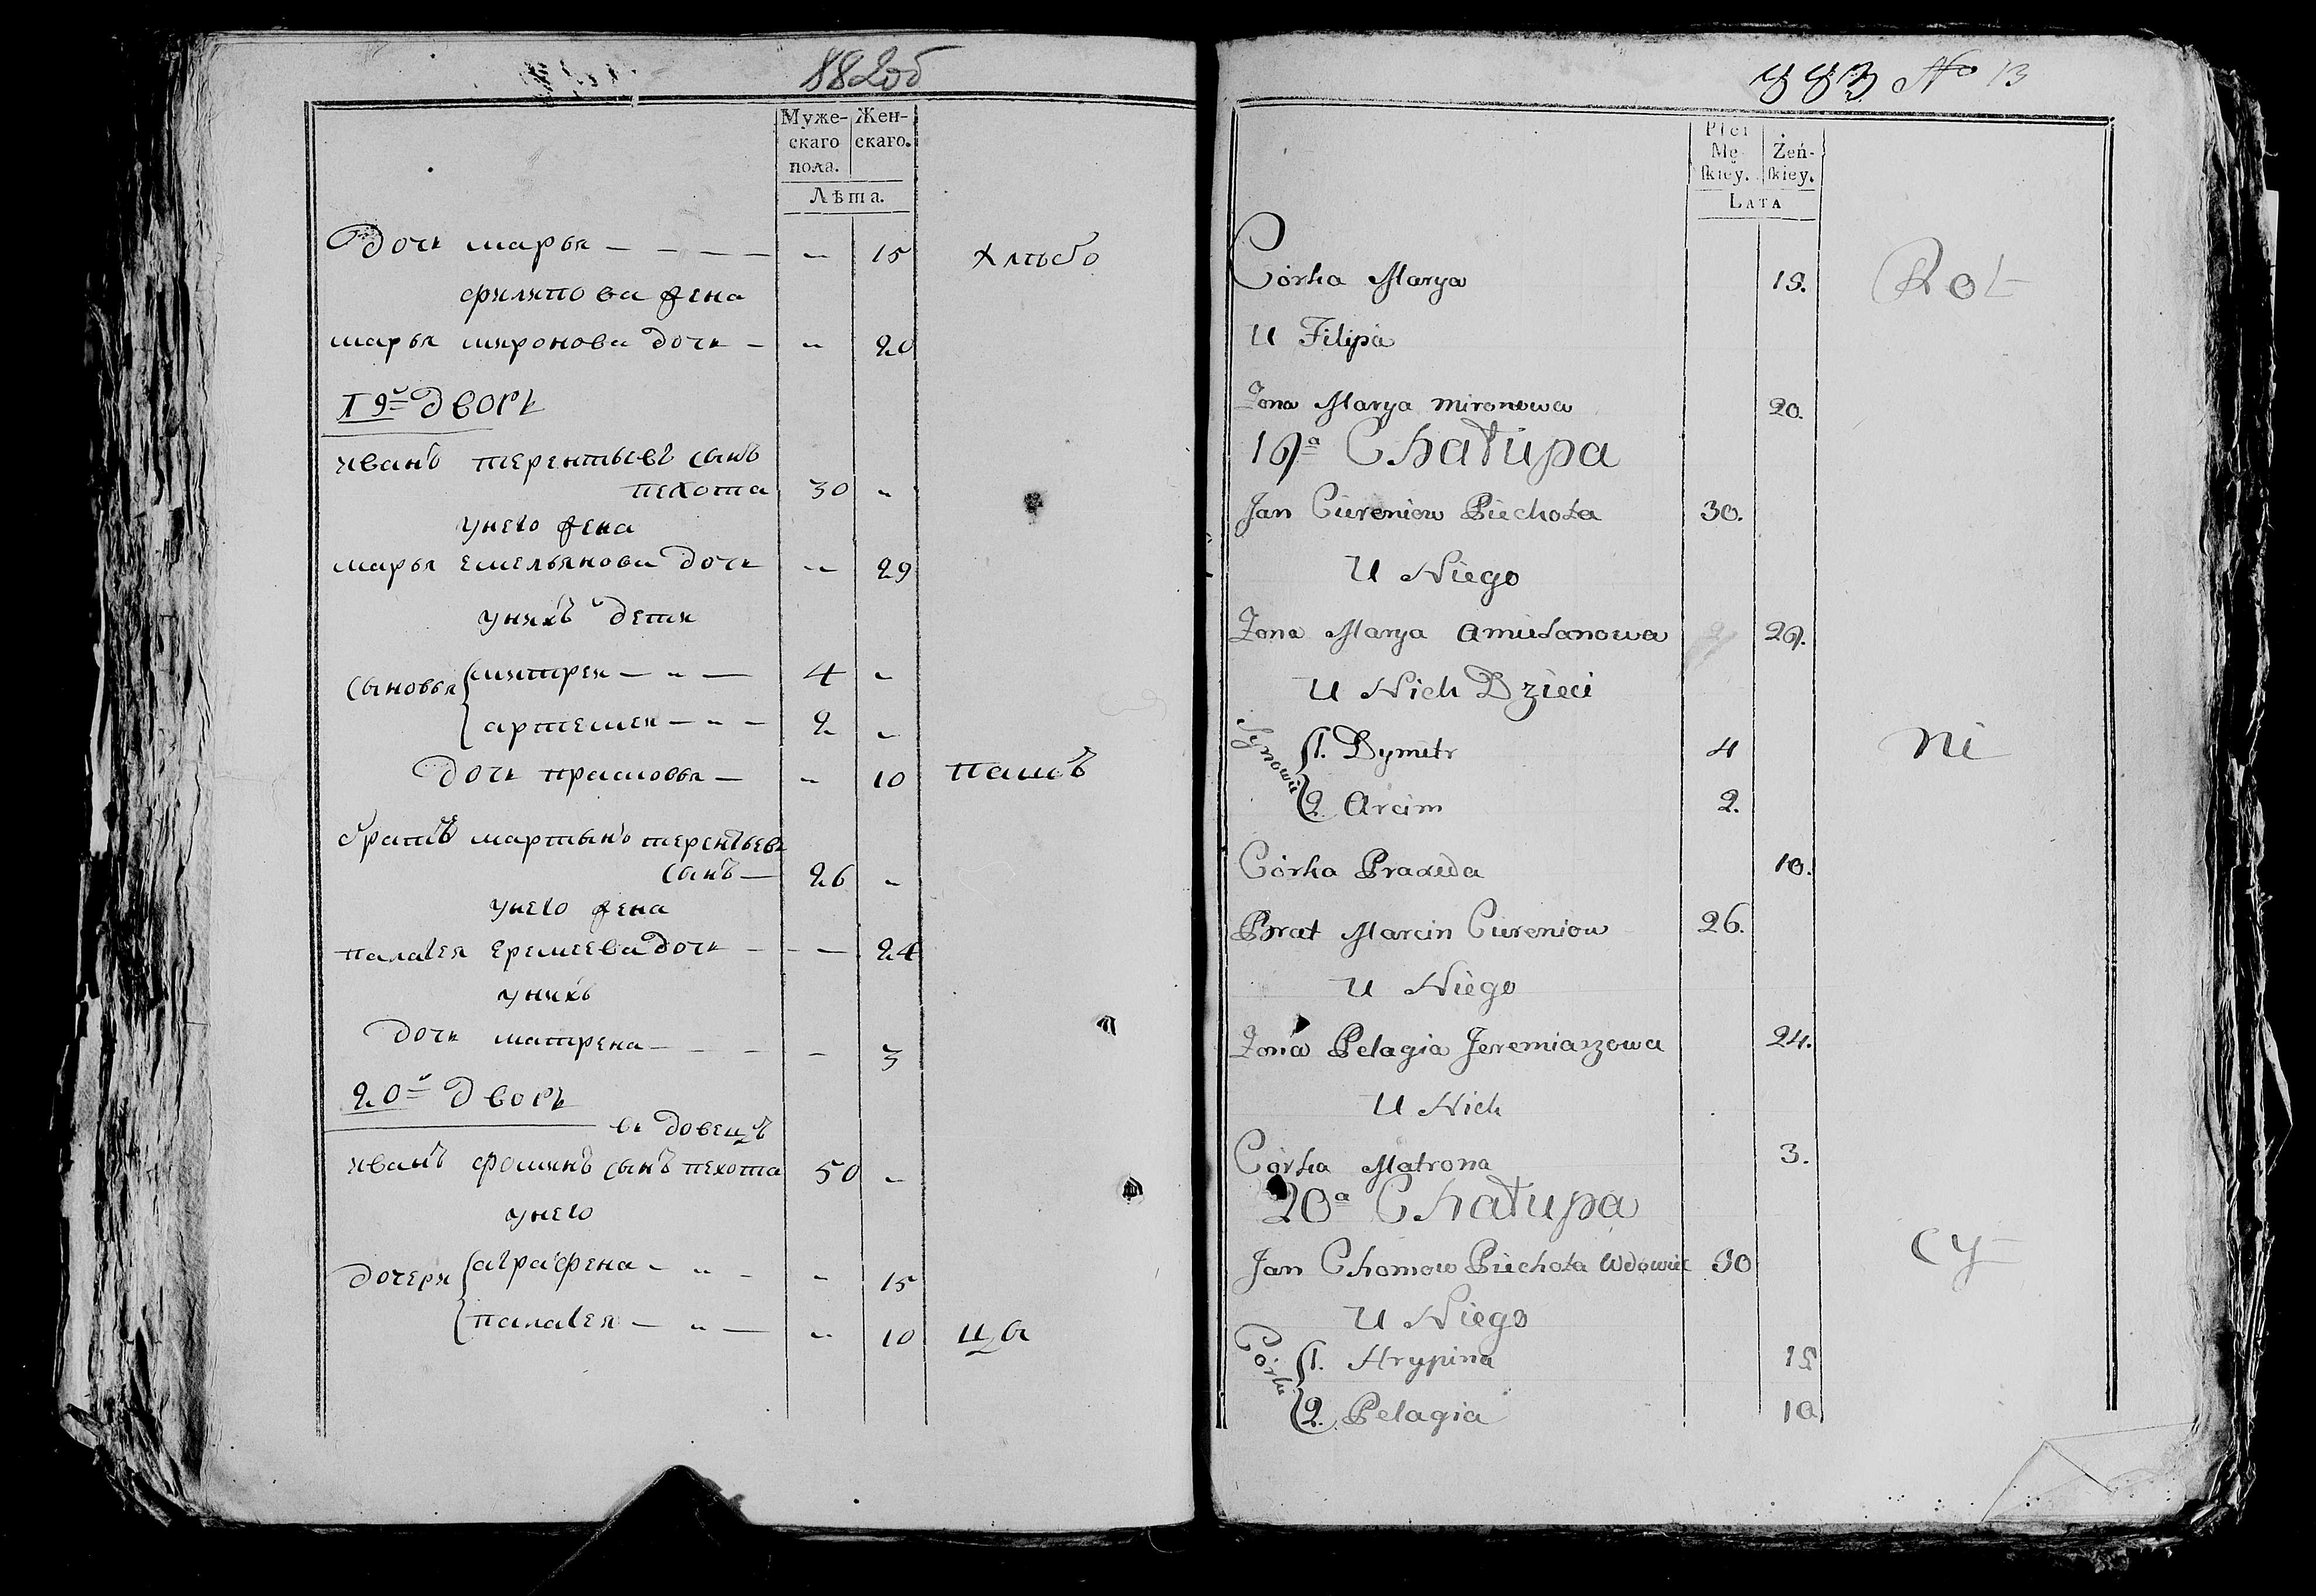 882об
Муже-
скаго
пола.
Жен-
скаго.
Лѣта.
Дочь марья — — — — „ 15 хлѣбо
филипова жена
марья миронова дочь — „ 20
19й дворъ
иванъ терентьевъ сынъ
пехота 30 „
унего жена
марья емельянова дочь „ 29
унихъ дети
сыновья
митрей — „ — 4 „
артемей — „ — 2 „
дочь прасковья — „ 10 пашъ
братъ мартынъ терентьевъ
сынъ — 26 „
унего жена
палагея еремеева дочь — — — 24
унихъ
дочь матрена — — — — 3
20й дворъ
вдовецъ
иванъ фоминъ сынъ пехота 50 „
унего
дочери
аграфена — „ — „ 15
палагея — „ — „ 10 ца
883 No 13
Płci
Mę-
skiey.
Żeń-
skiey.
LATA
Córka Marya 15. Rol
U Filipa
Żona Marya Mironowa 20.
19a Chałupa
Jan Ciureniow Piechota 30.
U Niego
Żona Marya Amielanowa 29.
U Nich Dzieci
Synowie
1. Dymitr 4 ni
2. Arcim 2.
Córka Praxeda 10.
Brat Marcin Ciureniow 26.
U Niego
Żona Pelagia Jeremiaszowa 24.
U Nich
Córka Matrona 3.
20a Chałupa
Jan Chomow Piechota Wdowiec 50 cy
U Niego
Córki
1. Hrypina 15
2. Pelagia 10